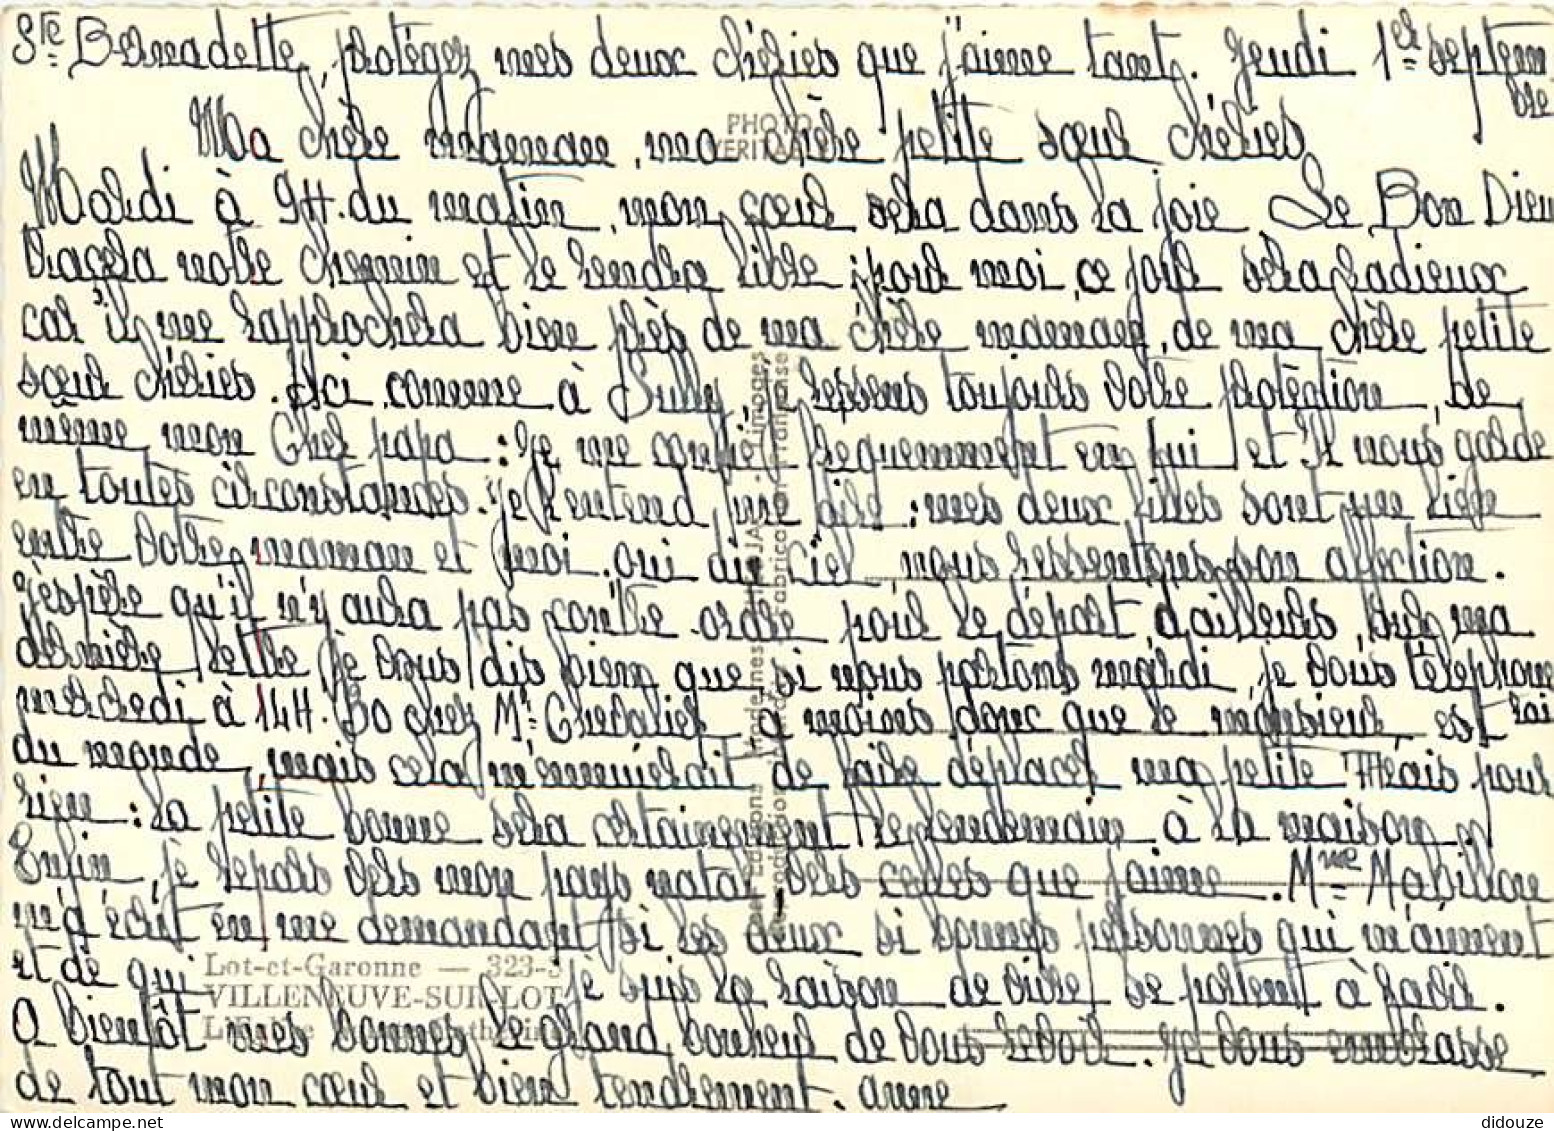 Ste Bernadette, protégez mes deux chéries que j'aime tant. Jeudi 1er septem
bre
Ma chère maman, ma chère petite sœur chéries
Mardi à 9H. du matin, mon cœur sera dans la joie Le Bon Dieu
tracera notre chemin et le rendra libre ; pour moi, ce jour sera radieux
car il me rapprochera bien près de ma chère maman, de ma chère petite
sœur chéries. Ici comme à Sully, je ressens toujours votre protection, de
même mon Cher papa : Je me confie fréquemment en lui et Il nous garde
en toutes circonstances. Je l'entend me dire : mes deux filles sont un lien
entre votre maman et moi. oui du Ciel, nous ressentons son affection.
J'espère qu'il n'y aura pas contre-ordre pour le départ, d'ailleurs, sur ma
dernière lettre je vous dis bien que si nous partons mardi, je vous téléphone
mercredi à 14H.30 chez Mr Chevalier, à moins donc que le monsieur est
du monde, mais cela m'ennuierait de faire déplacer ma petite pour
rien : la petite bonne sera certainement le lendemain à la maison.
Enfin, je repars vers mon pays natal vers celles que j'aime. Mme Mabillon
m'a écrit en me demandant si les deux si bonnes personnes qui m'aiment
et de qui je suis la raison de vivre se portent à ravir.
A bientôt mes bonnes le grand bonheur de vous revoir. Je vous embrasse
de tout mon cœur et bien tendrement. anne
PHOTO
VERITABLE
Lot-et-Garonne — 323-5
VILLENEUVE-SUR-LOT
didouze